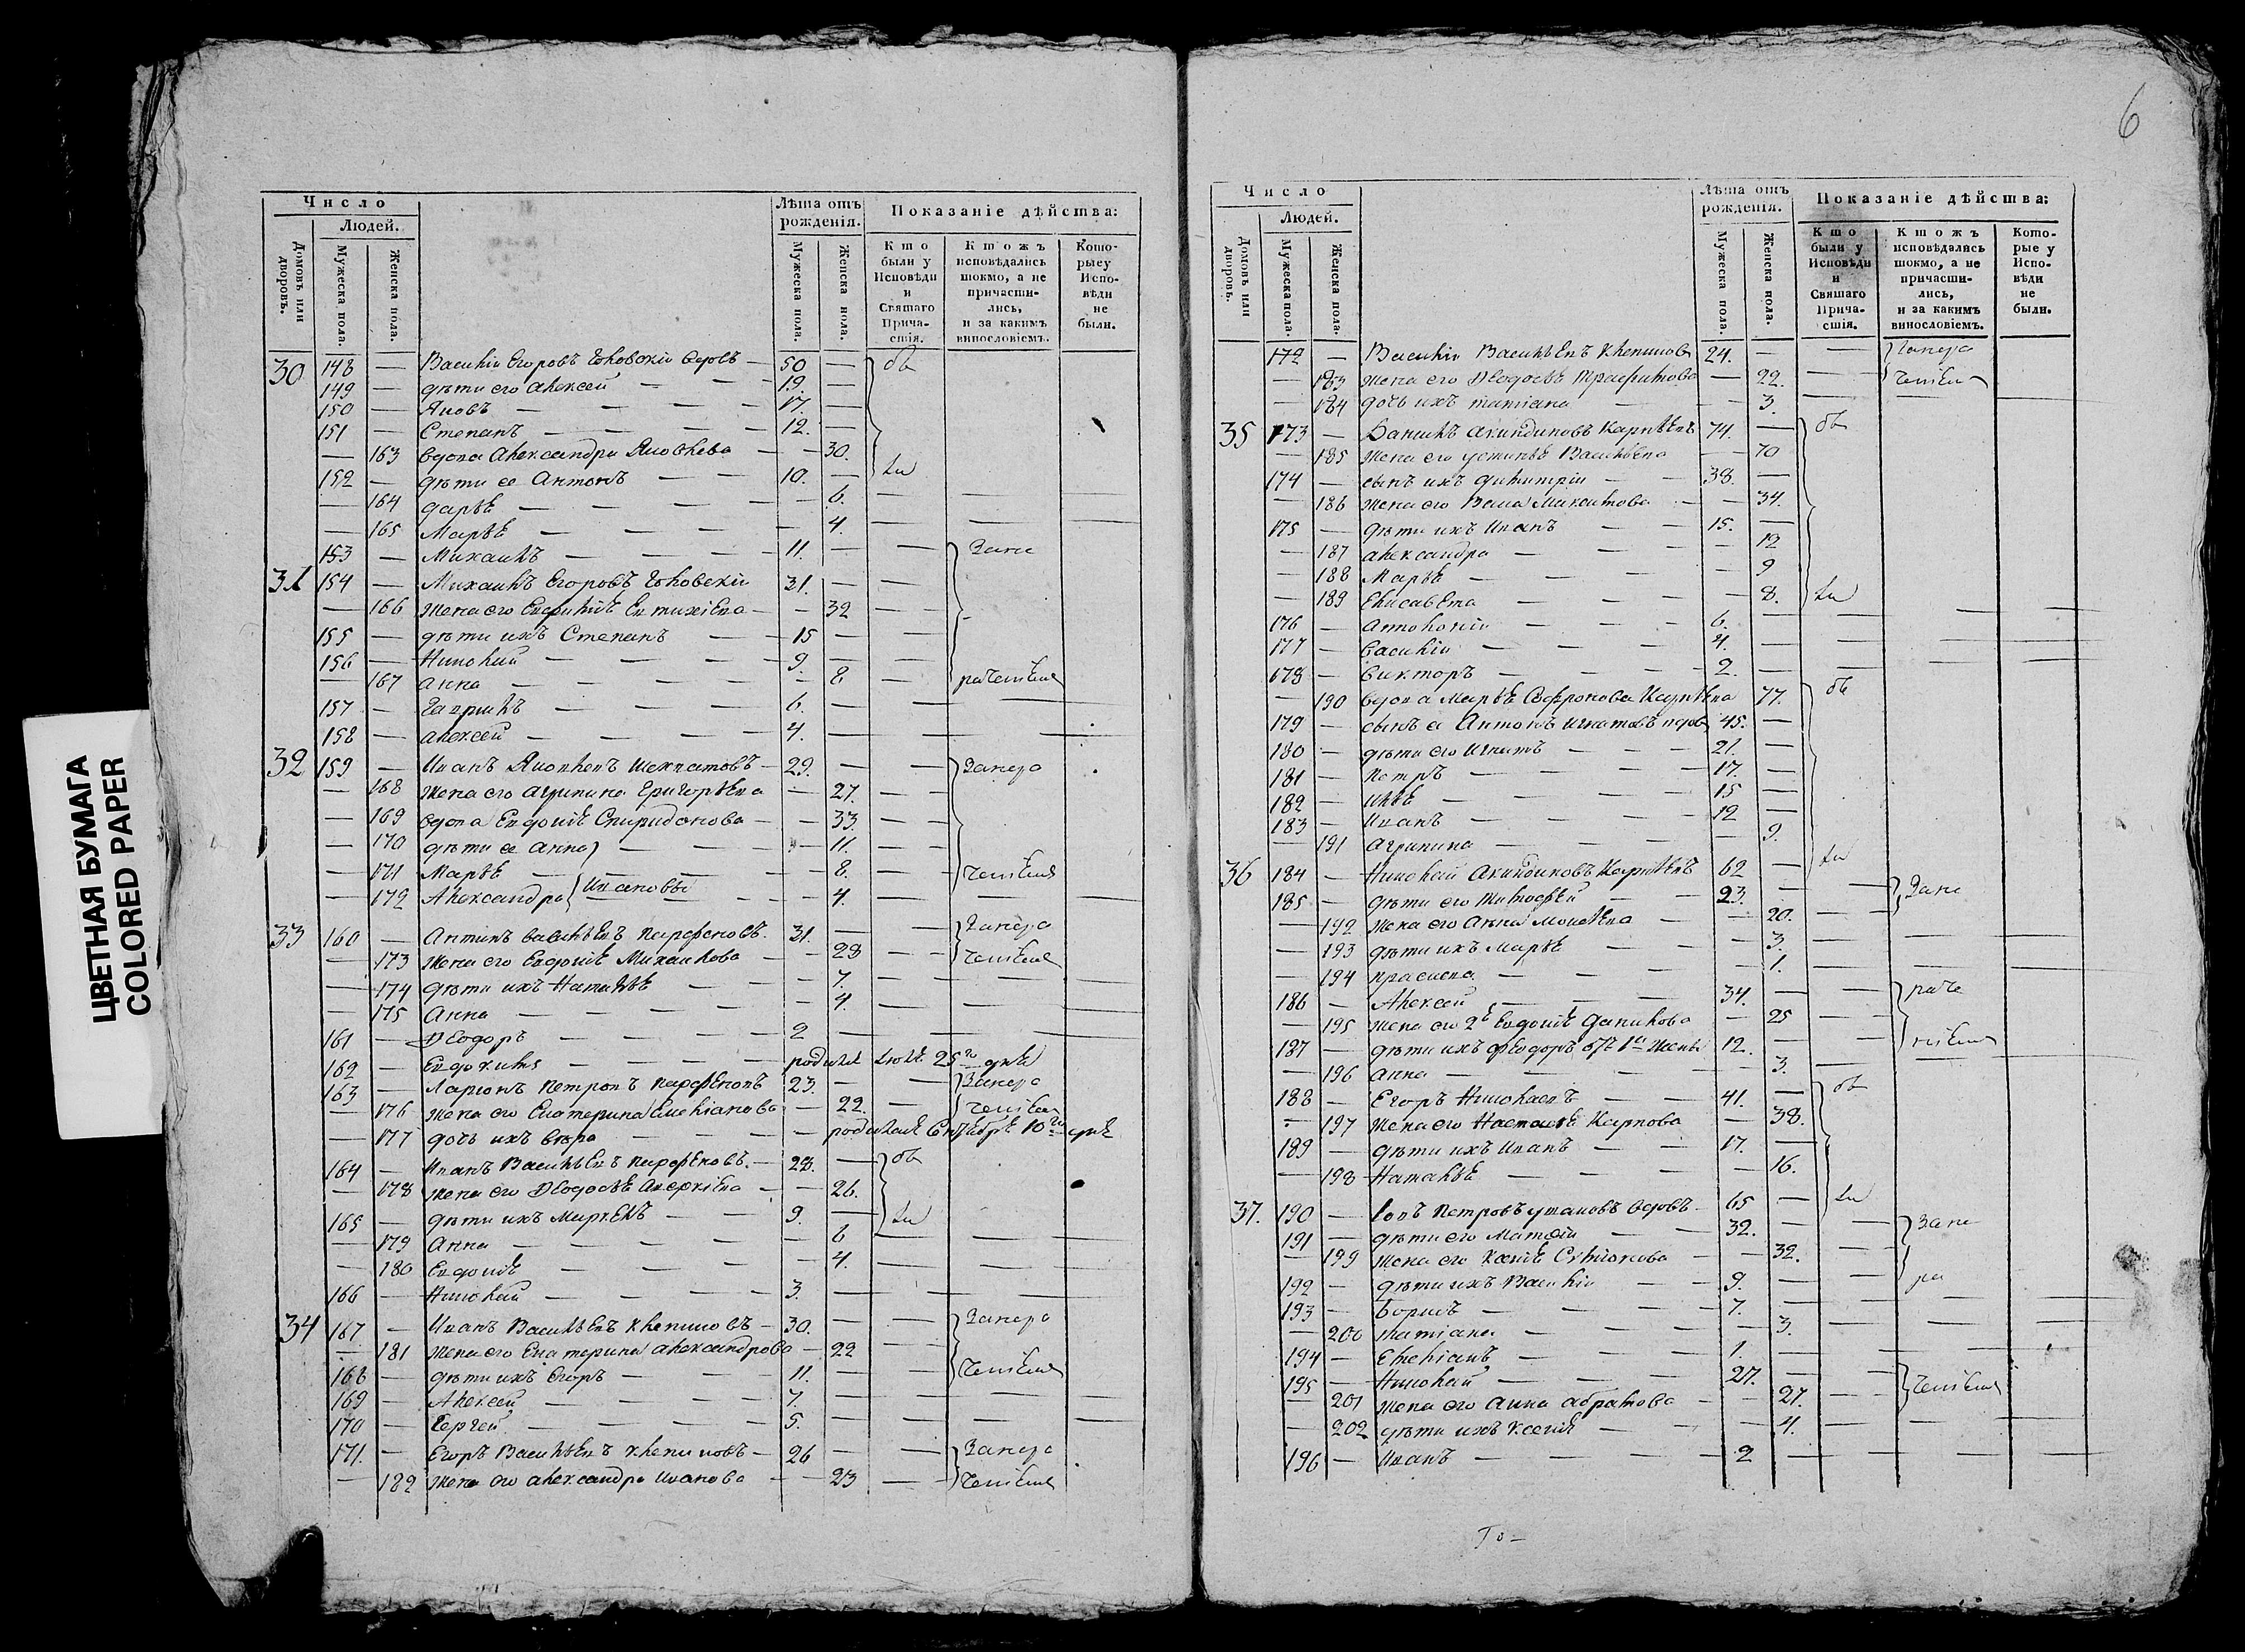 ЦВЕТНАЯ БУМАГА
COLORED PAPER
Число
Людей.
Домовъ или дворовъ.
Мужеска пола.
Женска пола.
Лѣта отъ рожденія.
Мужеска пола.
Женска пола.
Показаніе дѣйства:
Кто были у Исповѣди и Святаго Причастія.
Ктожъ исповѣдались токмо, а не причастились, и за какимъ винословіемъ.
Которые у Исповѣди не были.
30 148 — Василій Егоровъ вдовъ — 50 — бы
149 — дѣти его Алексей — — — 19. —
150 — Яковъ — — — 17. —
151 — Степанъ — — — 12. —
— 163 вдова Александра Яковлева — — 30.
152 — дѣти ее Антонъ — — 10. — ли
— 164 дарья — — — — 6. — — —
— 165 Марья — — — — 4. — — —
153 — Михаилъ — — — 11. — — Зане
31 154 — Михаилъ Егоровъ 31. — —
— 166 жена его Евтихіева — — 32 —
155 — дѣти ихъ Степанъ — — 15 — —
156 — Николай — — — 9. — —
— 167 анна — — — — 8 — рачениемъ
157 — Гаврилъ — — — 6. — — —
158 — алексей — — — 4. — — —
32 159 — Иванъ Яковлевъ — 29. — — Занера
— 168 жена его агрипина Григорьева — 27. —
— 169 вдова Евдокия Спиридонова — — 33. —
— 170 дѣти ее анна — — — 11. —
— 171 Марья — — — 8. — чениемъ
— 172 Александра Ивановы — — 4. —
33 160 — Антипъ васильевъ парфеновъ. 31. — — Занера
— 173 жена его Евдокия Михаилова — — 28 — чениемъ
— 174 дѣти ихъ Наталья — — — 7. — — —
— 175 анна — — — — 4. — — —
161 — Ѳеодоръ — — — 2 — — —
162 — Евдокимъ — — — родился Июля 25го дня
163 — Ларионъ петровъ парфеновъ 23. — — Занера
— 176 жена его Екатерина Емелианова — 22. — чениемъ
— 177 дочь ихъ вера — — — родилась 10го дня
164 — Иванъ Васильевъ парфеновъ. — 28. — бы
— 178 жена его Ѳеодосья — — 26.
165 — дѣти ихъ Маркелъ — — 9. — ли
— 179 Анна — — — — 6 — — —
— 180 Евдокия — — — — 4. — — —
166 — Николай — — — 3. — — —
34 167 — Иванъ Васильевъ — 30. — — Занера
— 181 жена его Екатерина александрова — 22 —
168 — дѣти ихъ Егоръ — — 11. — — чениемъ
169 — Алексей — — — 7. — — —
170 — Сергей — — — 5. — — —
171. — Егоръ Васильевъ — 26 — — Занера
— 182 жена его александра Иванова — — 23 — чениемъ
6
Число
Людей.
Домовъ или дворовъ.
Мужеска пола.
Женска пола.
Лѣта отъ рожденія.
Мужеска пола.
Женска пола.
Показаніе дѣйства:
Кто были у Исповѣди и Святаго Причастія.
Ктожъ исповѣдались токмо, а не причастились, и за какимъ винословіемъ.
Которые у Исповѣди не были.
172 — Василій Васильевъ 24. — — Занера
— 183 жена его Ѳеодосья — 22. — чениемъ
— 184 дочь ихъ татиана — — 3. — — —
35 173 — Данилъ акиндиновъ 74. — бы
— 185 жена его устинья Васильева — 70
174 — сынъ ихъ димитрій — — 38. —
— 186 жена его Васса — — 34.
175 — дѣти ихъ Иванъ — — 15. —
— 187 александра — — — — 12
— 188 Марья — — — — 9
— 189 Елисавета — — — 8. ли
176 — Антоній — — — 6. — — —
177 — василій — — — 4. — — —
178 — викторъ — — — 2. — — —
— 190 вдова Марья Софронова 77. бы
179 — сынъ ее Антонъ игнатовъ вдовъ 45. —
180 — дѣти его Игнатъ — — — 21. —
181 — петръ — — — 17. —
182 — илья — — — 15 —
183 — Иванъ — — — 12 —
— 191 агрипина — — — 9. ли
36 184 — Николай Акиндиновъ 62 —
185 — дѣти его Тимофей — — 23. — — Зане
— 192 жена его Анна — — 20. —
— 193 дѣти ихъ Марья — — 3. — — —
— 194 — — — 1. — — —
186 — Алексей — — — 34. — — раче
— 195 жена его 2я Евдокия Данилова — 25 —
187 — дѣти ихъ Ѳеодоръ отъ 1й жены 12. — — ниемъ
— 196 анна — — — — 3. — — —
188 — Егоръ Николаевъ — — 41. — бы
— 197 жена его Настасья Карпова — 38.
189 — дѣти ихъ Иванъ — — 17. —
— 198 Наталья — — — 16. ли
37. 190 — петровъ вдовъ. 65 —
191 — дѣти его Матвей — — 32. — — Зане
— 199 жена его Ксения — — 32. —
192 — дѣти ихъ Василій — — 9. — — ра
193 — борисъ — — — 7. — — —
— 200 татиана — — — 3. — — —
194 — Емелианъ — — — 1. — — —
195 — Николай — — — 27. — — чениемъ
— 201 жена его Анна — — 27. —
— 202 дѣти ихъ Ксения — — — 4. — — —
196 — Иванъ — — — 2 — — —
То —